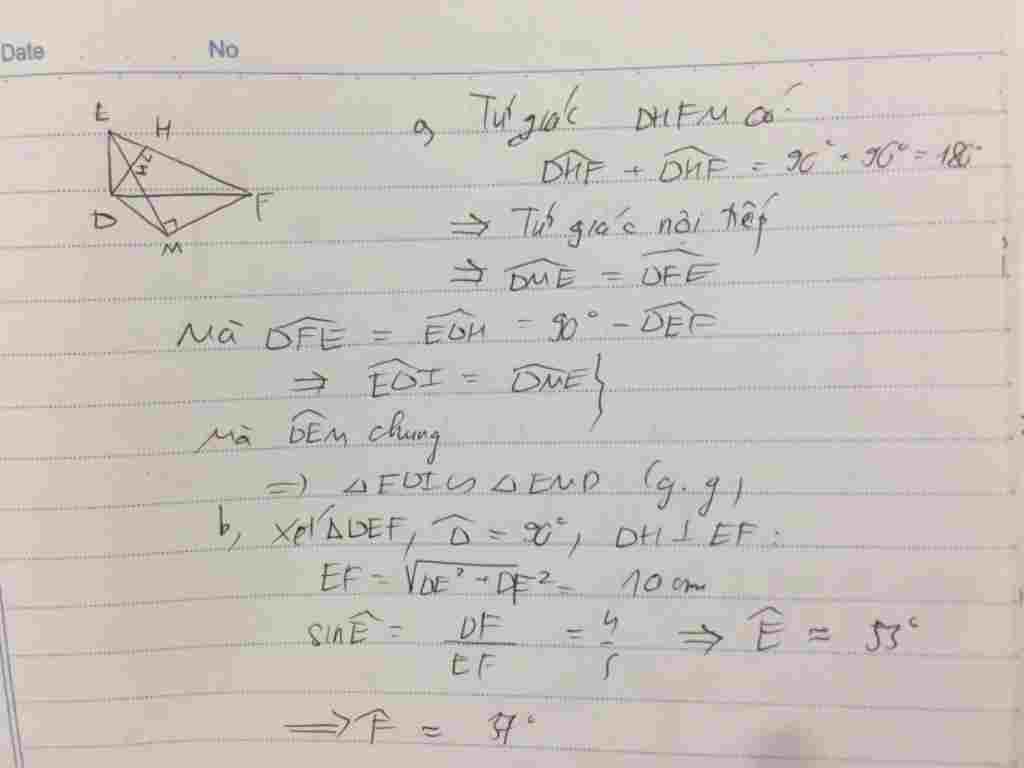 Date No
E H
D F
M
a, Tứ giác DHFM có
DHF + DHF = 90° + 90° = 180°
⇒ Tứ giác nội tiếp
⇒ DME = DFE
Mà DFE = EDH = 90° - DEF
⇒ EDI = DME }
Mà DEM chung
=) △EDI ∽ △EMD (g.g)
b, Xét △DEF, D = 90°, DH ⊥ EF :
EF = √DE² + DF² = 10 cm
sin E = DF/EF = 4/5 ⇒ E ≈ 53°
⇒ F = 37°